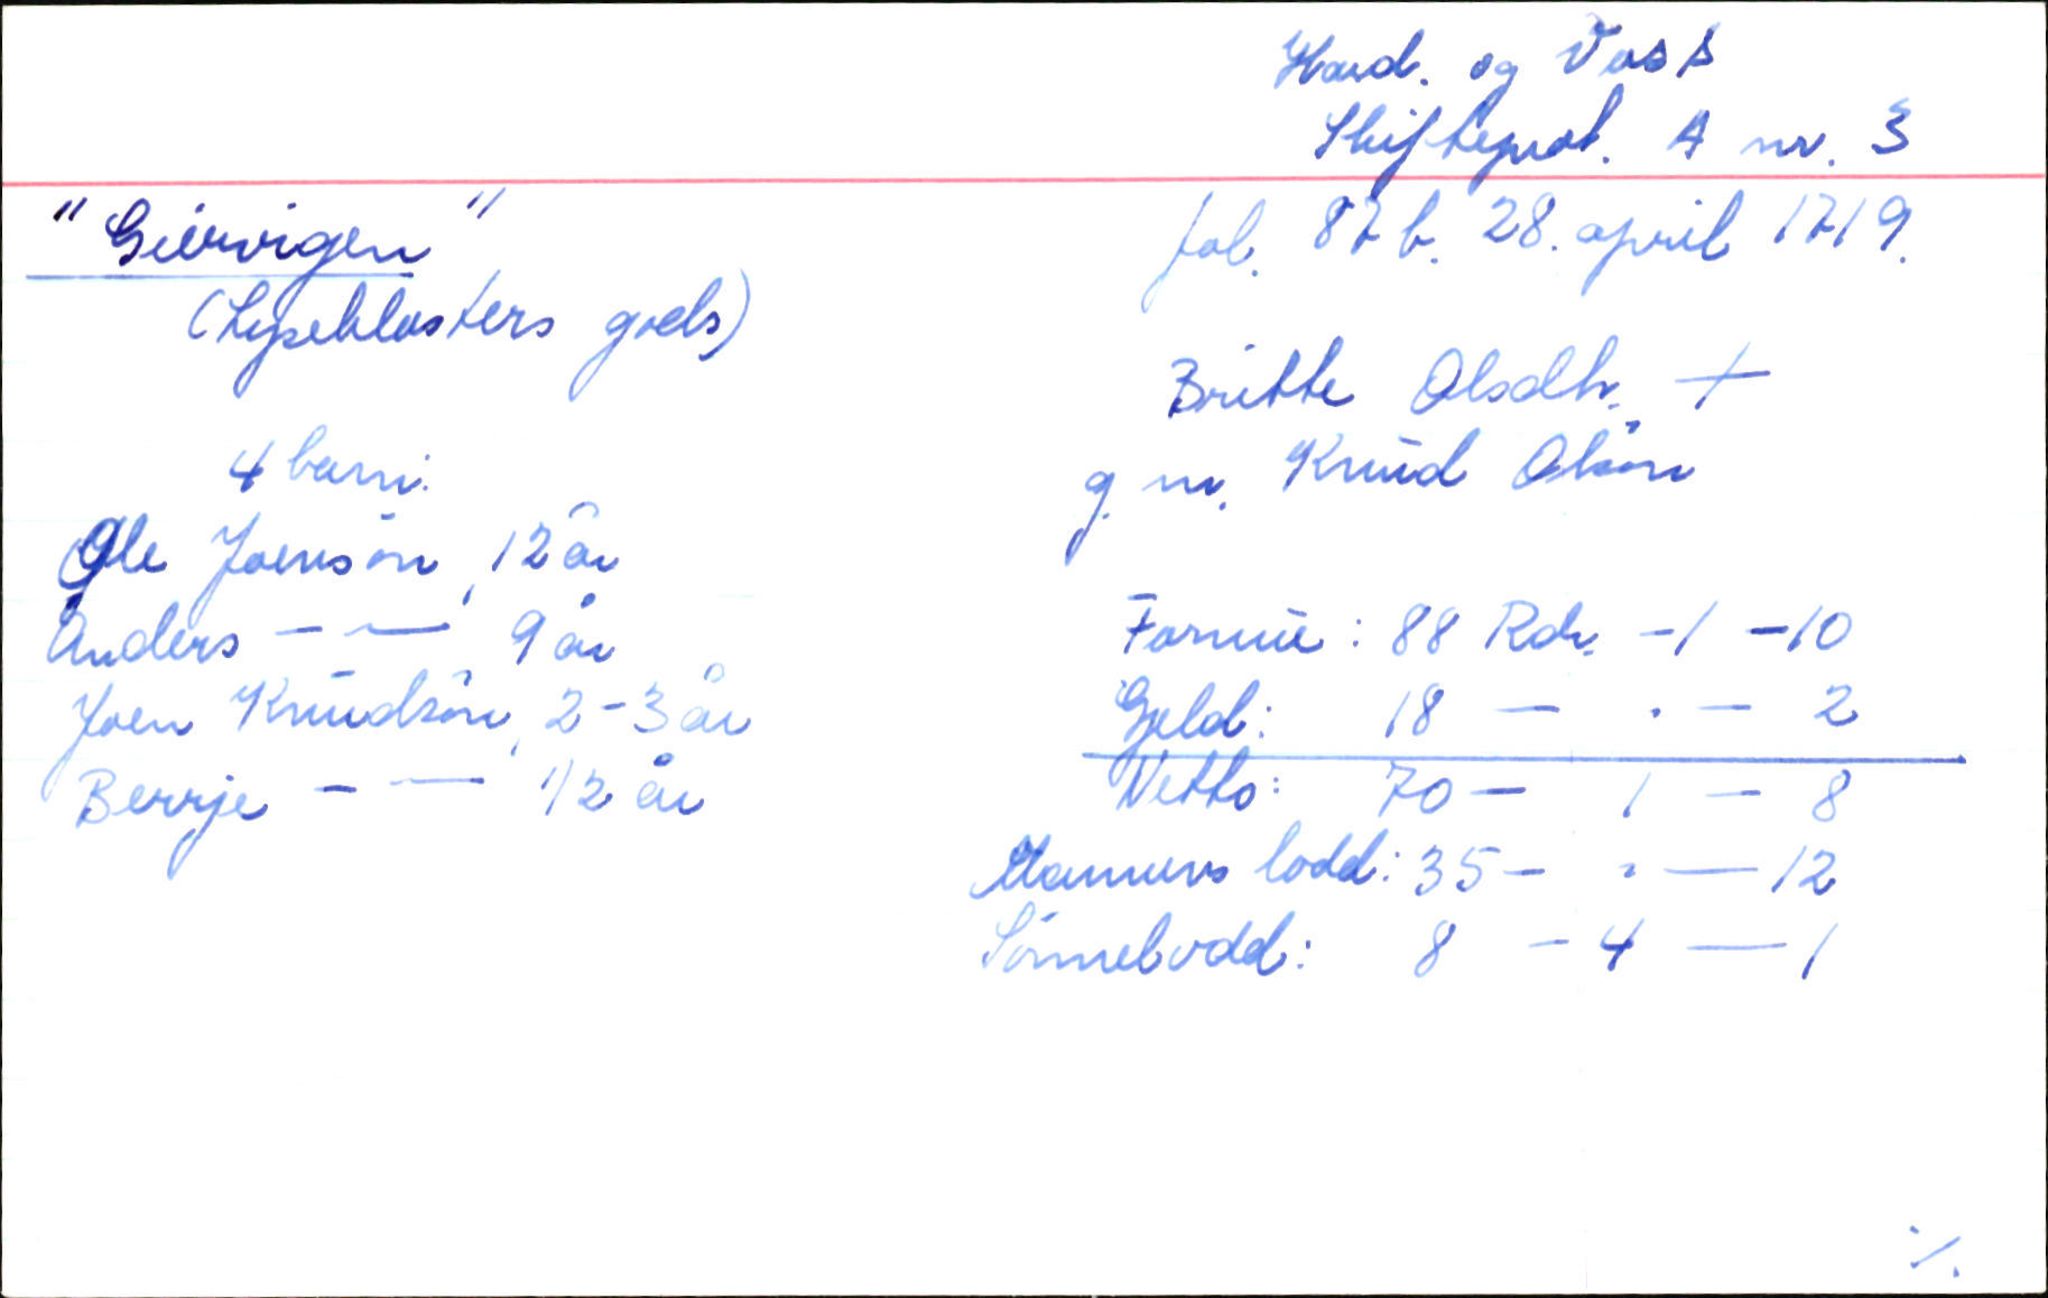 Hard. og Voss
Skifteprot. A nr. 3
fol. 87 b. 28. april 1719.
"Giervigen"
(Lyseklosters gods)
Britte Olsdtr. +
g. m. Knud Olsön
4 barn:
Ole Joensön, 12 år
Anders - — 9 år
Joen Knudsön, 2-3 år
Berrje - — 1/2 år
Formue: 88 Rdr. -1 -10
Gjeld: 18 — . — 2
Netto: 70 — 1 — 8
Mannens lodd: 35 — . — 12
Sönnelodd: 8 — 4 — 1
·/.